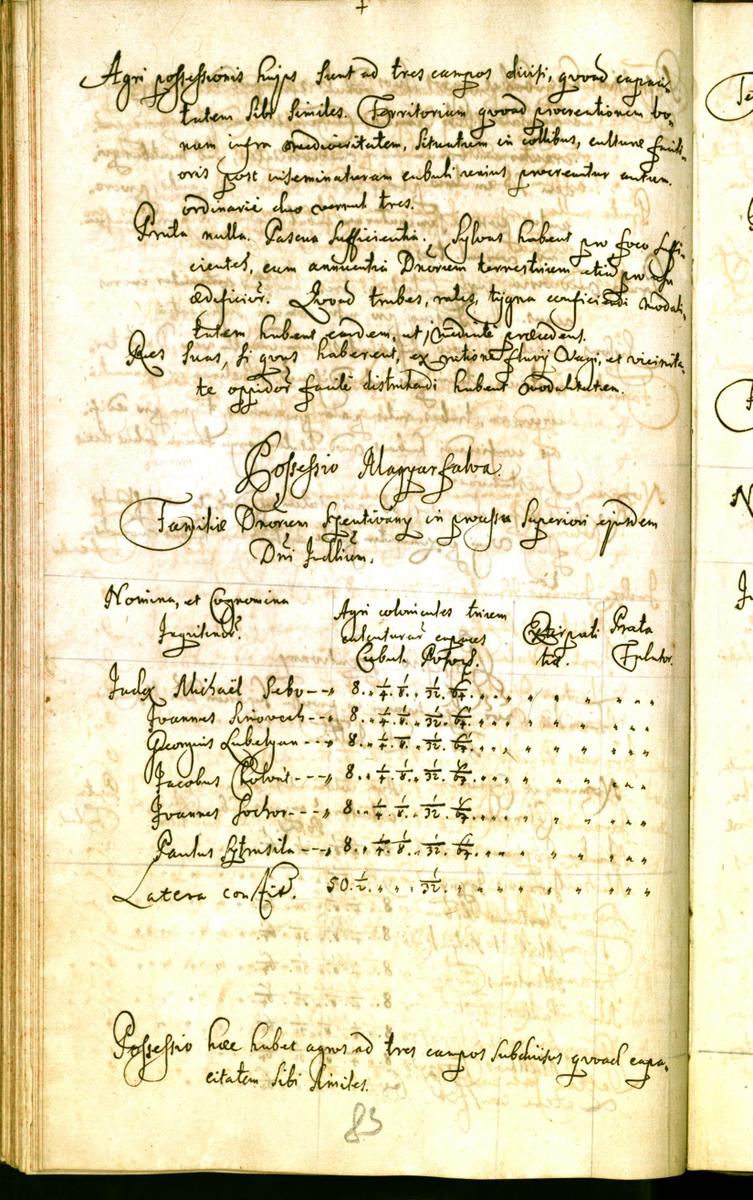 Agri possessionis hujus sunt ad tres campos divisi, quoad capaci-
tatem sibi similes. Territorium quoad procreationem bo-
nam infra mediocritatem, situatum in collibus, culturæ facili-
oris post inseminaturam cubuli unius procreantur autum.
ordinarie duo vernal tres.
Prata nulla. Pascua sufficientia. Sylvas habent pro foco suffi-
cientes, cum annuentia Dnorum terrestrium etiam pro usu
ædificior. Quoad trabes, rates, tygna conficiendi modali-
tatem habent eandem, ut immediate præcedens.
Res suas, si quas haberent, ex ratione fluvy Vagi, et vicinita-
te oppidor facile distrahendi habent modalitatem.
Possessio Magyarfalva.
Familiæ Dnorum Szentivany in processu superiori ejusdem
Dni Judlium.
Nomina, et Cognomina
Inquilinor.
Agri colonicales trium
calcaturar capaces
Cubul. Poson.
Extirpati
tia.
Prata
Falcator.
Judex Michaël Sebo 8. 1/4. 1/8. 1/32. 1/64
Joannes Sinovech 8. 1/4. 1/8. 1/32. 1/64
Georgius Lubelyan 8. 1/4. 1/8. 1/32. 1/64
Jacobus 8. 1/4. 1/8. 1/32. 1/64
Joannes Sochor 8. 1/4. 1/8. 1/32. 1/64
Paulus 8. 1/4. 1/8. 1/32. 1/64
Latera con fit. 50. 1/2. 1/32.
Possessio hæc habet agros ad tres campos subdivisos quoad capa-
citatem sibi similes.
83